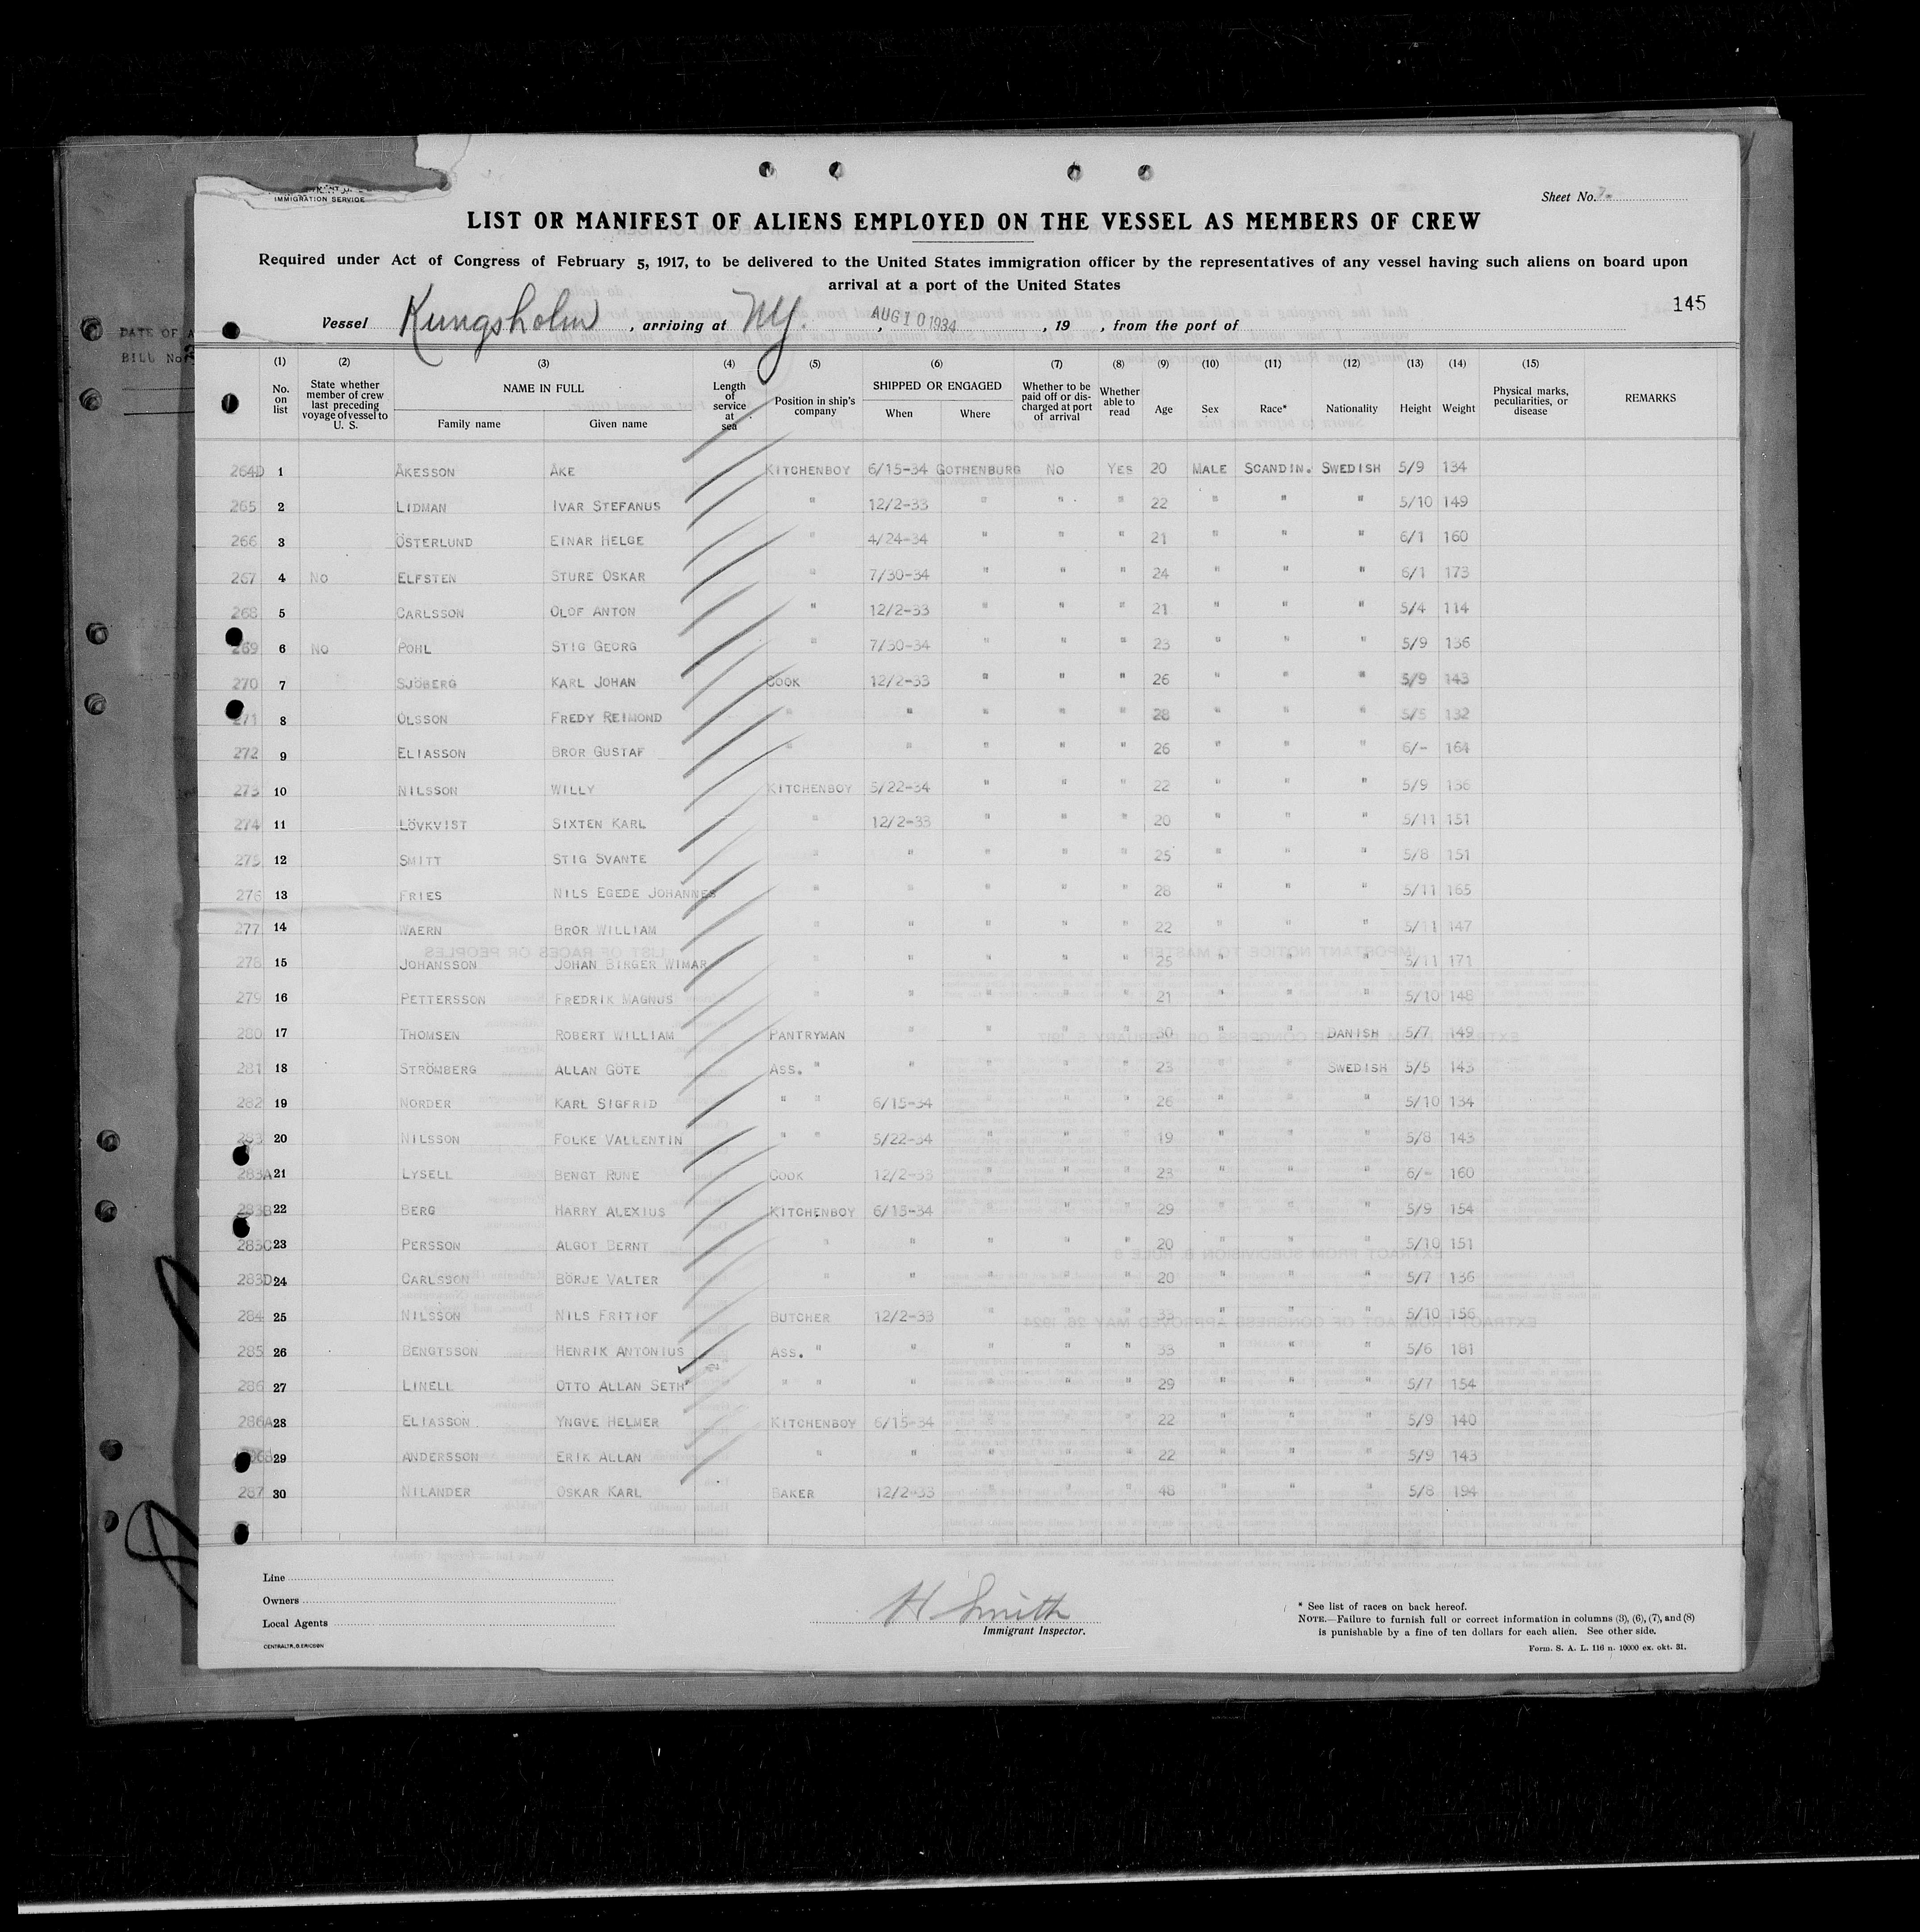 IMMIGRATION SERVICE
Sheet No.
LIST OR MANIFEST OF ALIENS EMPLOYED ON THE VESSEL AS MEMBERS OF CREW
Required under Act of Congress of February 5, 1917, to be delivered to the United States immigration officer by the representatives of any vessel having such aliens on board upon
arrival at a port of the United States
145
Vessel Kungsholm, arriving at NY., AUG 10 1934, 19 , from the port of
DATE OF A
BILL No.
(1) (2) (3) (4) (5) (6) (7) (8) (9) (10) (11) (12) (13) (14) (15)
No. on list State whether member of crew last preceding voyage of vessel to U. S. NAME IN FULL Family name Given name Length of service at sea Position in ship's company SHIPPED OR ENGAGED When Where Whether to be paid off or discharged at port of arrival Whether able to read Age Sex Race* Nationality Height Weight Physical marks, peculiarities, or disease REMARKS
264D 1 ÅKESSON ÅKE KITCHENBOY 6/15-34 GOTHENBURG NO YES 20 MALE SCANDIN. SWEDISH 5/9 134
265 2 LIDMAN IVAR STEFANUS " 12/2-33 " " " 22 " " " 5/10 149
266 3 ÖSTERLUND EINAR HELGE " 4/24-34 " " " 21 " " " 6/1 160
267 4 NO ELFSTEN STURE OSKAR " 7/30-34 " " " 24 " " " 6/1 173
268 5 CARLSSON OLOF ANTON " 12/2-33 " " " 21 " " " 5/4 114
269 6 NO POHL STIG GEORG " 7/30-34 " " " 23 " " " 5/9 136
270 7 SJÖBERG KARL JOHAN COOK 12/2-33 " " " 26 " " " 5/9 143
271 8 OLSSON FREDY REIMOND " " " " " 28 " " " 5/5 132
272 9 ELIASSON BROR GUSTAF " " " " " 26 " " " 6/- 164
273 10 NILSSON WILLY KITCHENBOY 5/22-34 " " " 22 " " " 5/9 136
274 11 LÖVKVIST SIXTEN KARL " 12/2-33 " " " 20 " " " 5/11 151
275 12 SMITT STIG SVANTE " " " " " 25 " " " 5/8 151
276 13 FRIES NILS EGEDE JOHANNES " " " " " 28 " " " 5/11 165
277 14 WAERN BROR WILLIAM " " " " " 22 " " " 5/11 147
278 15 JOHANSSON JOHAN BIRGER WIMAR " " " " " 25 " " " 5/11 171
279 16 PETTERSSON FREDRIK MAGNUS " " " " " 21 " " " 5/10 148
280 17 THOMSEN ROBERT WILLIAM PANTRYMAN " " " " 30 " " DANISH 5/7 149
281 18 STRÖMBERG ALLAN GÖTE ASS. " " " " " 23 " " SWEDISH 5/5 143
282 19 NORDER KARL SIGFRID " " 6/15-34 " " " 26 " " " 5/10 134
283 20 NILSSON FOLKE VALLENTIN " " 5/22-34 " " " 19 " " " 5/8 143
283A 21 LYSELL BENGT RUNE COOK 12/2-33 " " " 23 " " " 6/- 160
283B 22 BERG HARRY ALEXIUS KITCHENBOY 6/15-34 " " " 29 " " " 5/9 154
283C 23 PERSSON ALGOT BERNT " " " " " 20 " " " 5/10 151
283D 24 CARLSSON BÖRJE VALTER " " " " " 20 " " " 5/7 136
284 25 NILSSON NILS FRITIOF BUTCHER 12/2-33 " " " 33 " " " 5/10 156
285 26 BENGTSSON HENRIK ANTONIUS ASS. " " " " " 33 " " " 5/6 181
286 27 LINELL OTTO ALLAN SETH " " " " " " 29 " " " 5/7 154
286A 28 ELIASSON YNGVE HELMER KITCHENBOY 6/15-34 " " " 22 " " " 5/9 140
29 ANDERSSON ERIK ALLAN " " " " " 22 " " " 5/9 143
287 30 NILANDER OSKAR KARL BAKER 12/2-33 " " " 48 " " " 5/8 194
Line
Owners
Local Agents
CENTRALTR, G. ERICSON
H Smith
Immigrant Inspector.
* See list of races on back hereof.
NOTE.—Failure to furnish full or correct information in columns (3), (6), (7), and (8)
is punishable by a fine of ten dollars for each alien. See other side.
Form. S. A. L. 116 n. 10000 ex. okt. 31.